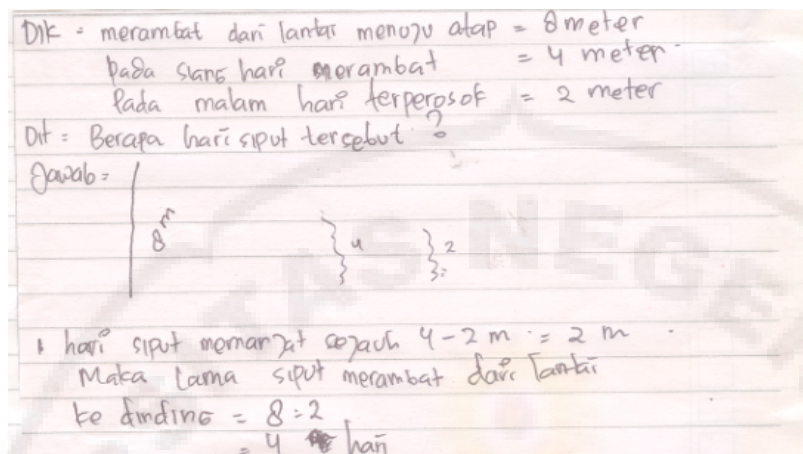 Dik = merambat dari lantai menuju atap = 8 meter
pada siang hari merambat = 4 meter
Pada malam hari terperosok = 2 meter
Dit = Berapa hari siput tersebut ?
Jawab =
8 m 4 2
1 hari siput memanjat sejauh 4 - 2 m = 2 m
Maka lama siput merambat dari lantai
ke dinding = 8 : 2
= 4 hari
ITAS NEGE